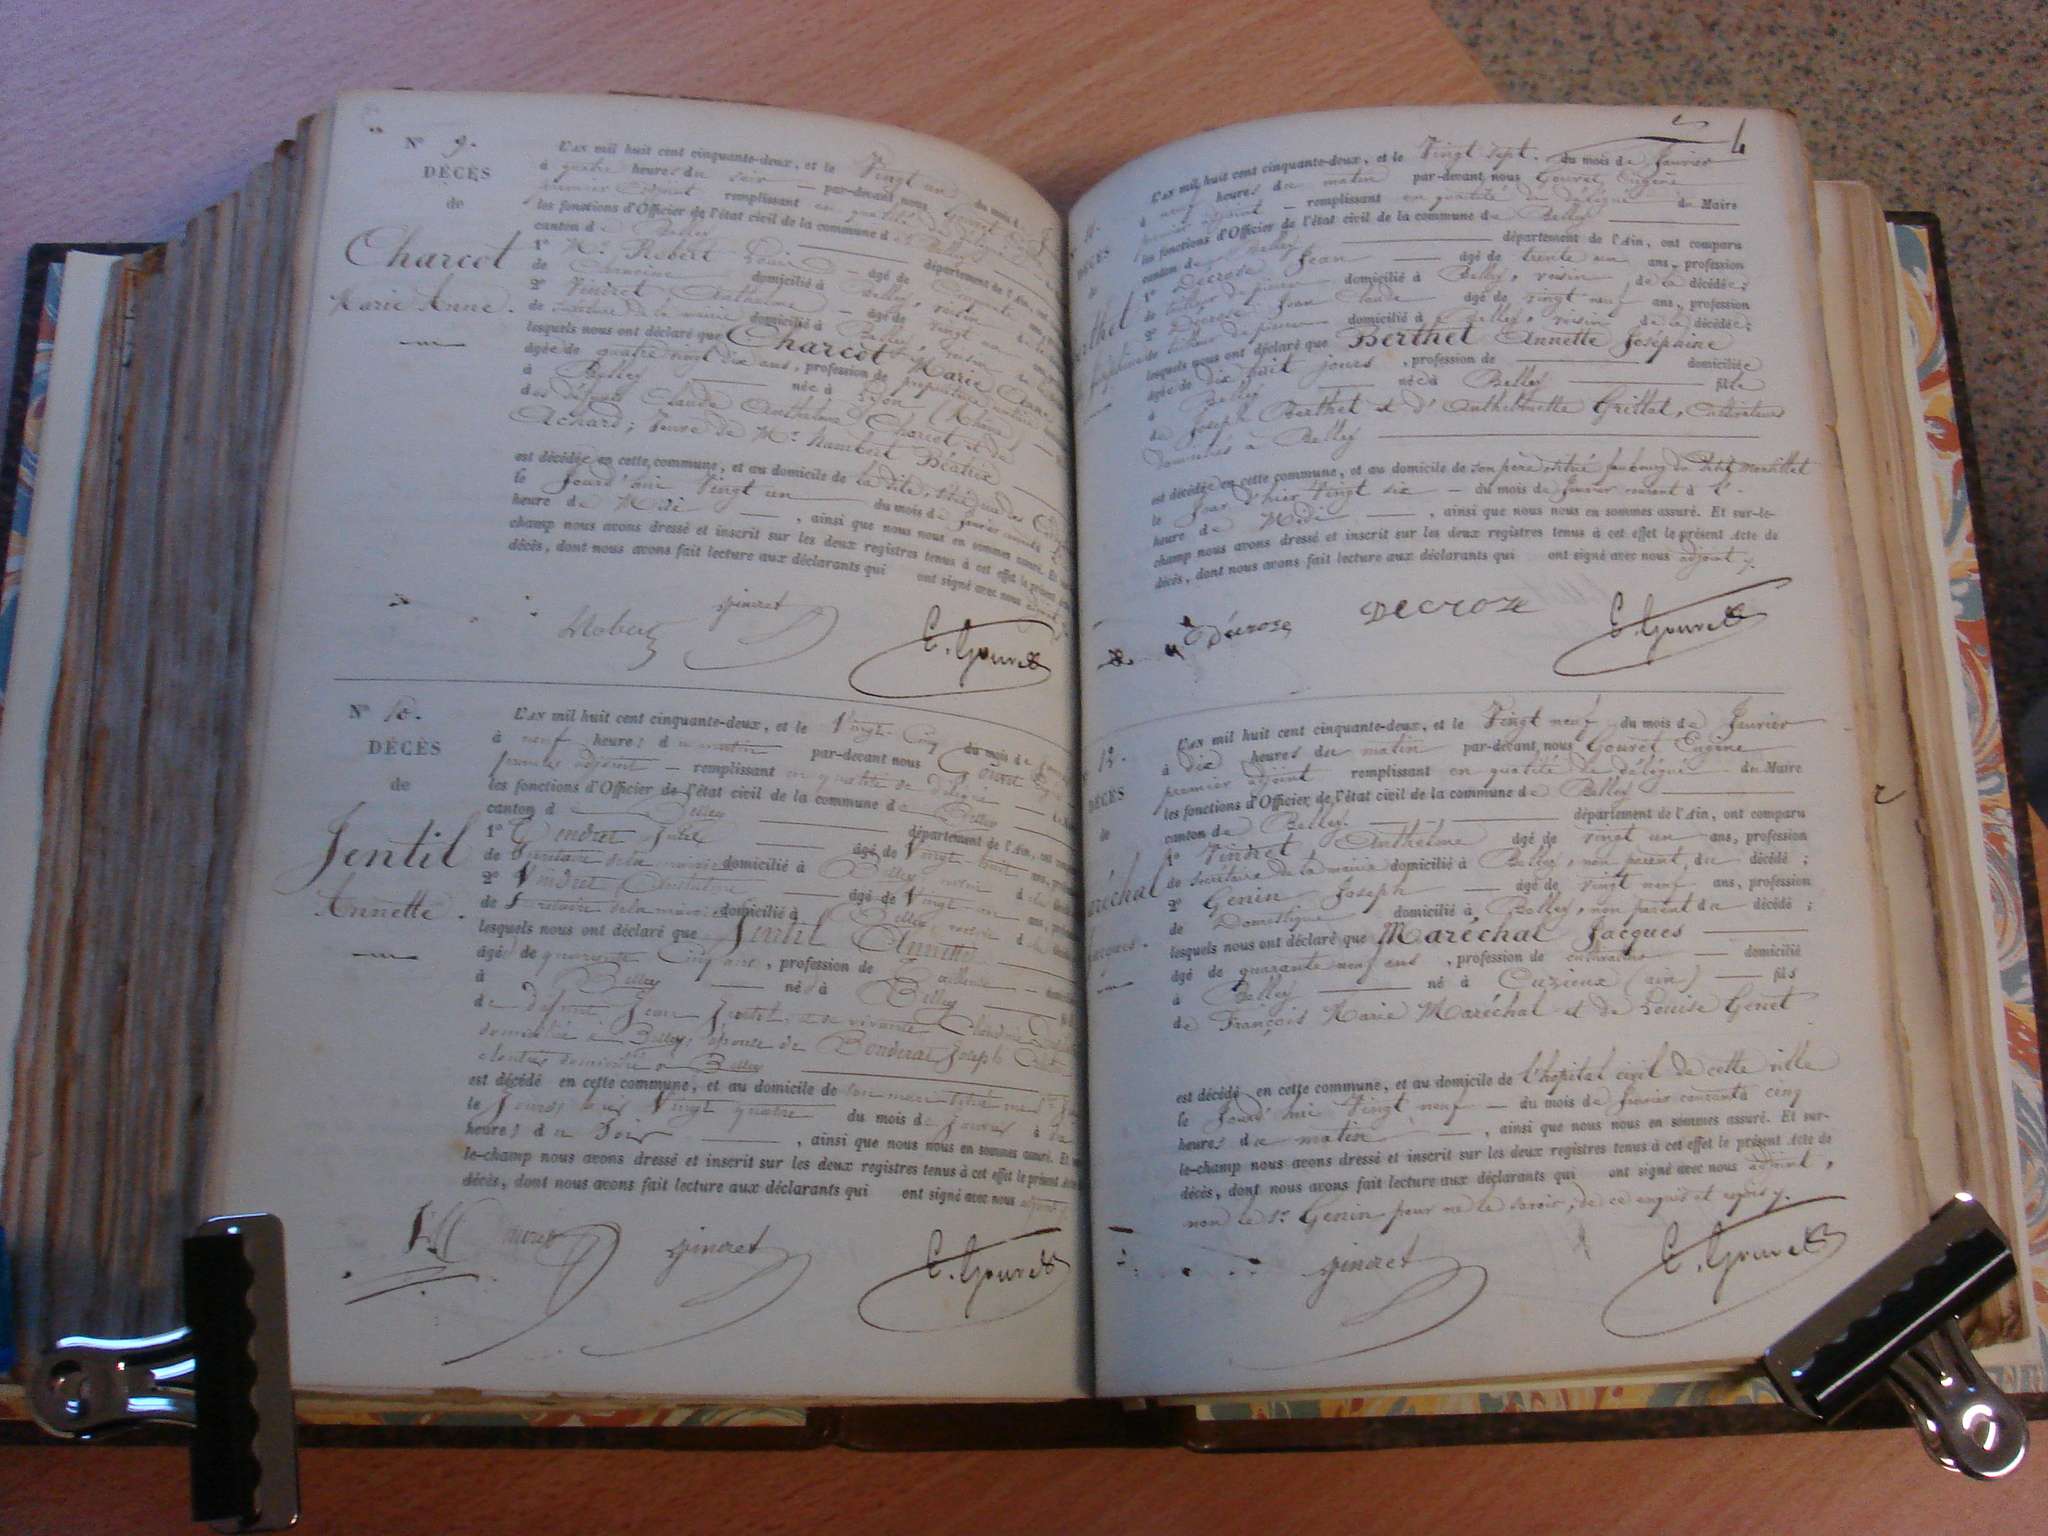 N° 9.
DÉCÈS
de
Charcot
Marie Anne.
L'AN mil huit cent cinquante-deux, et le Vingt un du mois d
à quatre heures du soir — par-devant nous
premier adjoint remplissant en qualité de
les fonctions d'Officier de l'état civil de la commune d Belley
canton de Belley département de l'Ain, ont
1° Mr Robert Louis âgé de
de domicilié à Belley, voisin
2° Vindret Anthelme — âgé de vingt un
de secrétaire de la mairie domicilié à Belley, voisin
lesquels nous ont déclaré que Charcot Marie Anne
âgée de quatre vingt dix ans, profession de propriétaire
à Belley née à Lyon (Rhône)
des défunts Claude Anthelme Charcot et de
Achard; Veuve de Mr Béatrix
est décédée en cette commune, et au domicile de la dite,
le jourd'hui Vingt un du mois de janvier courant
heure de Midi — , ainsi que nous nous en sommes assuré. Et
champ nous avons dressé et inscrit sur les deux registres tenus à cet effet le présent
décès, dont nous avons fait lecture aux déclarants qui ont signé avec nous
Robert vindret E. Gouvet
N° 10.
DÉCÈS
de
Jentil
Annette.
L'AN mil huit cent cinquante-deux, et le Vingt Cinq du mois de
à neuf heures du matin par-devant nous Gouvet
premier adjoint — remplissant en qualité de délégué
les fonctions d'Officier de l'état civil de la commune de Belley
canton de Belley département de l'Ain, ont
1° Vindret âgé de Vingt huit ans,
de secrétaire de la mairie domicilié à Belley voisin
2° Vindret Anthelme âgé de Vingt un ans,
de Secrétaire de la mairie domicilié à Belley, voisin
lesquels nous ont déclaré que Jentil Annette
âgé de quarante Cinq ans, profession de
à Belley né à Belley
de défunt Jean Jentil, et de vivante Claudine
domiciliée à Belley; épouse de Joseph
domicilié à Belley
est décédé en cette commune, et au domicile de son mari
le jour d'hier Vingt quatre du mois de janvier à
heures du Soir , ainsi que nous nous en sommes assuré. Et
le-champ nous avons dressé et inscrit sur les deux registres tenus à cet effet le présent
décès, dont nous avons fait lecture aux déclarants qui ont signé avec nous adjoint
vindret E. Gouvet
4
L'AN mil huit cent cinquante-deux, et le Vingt sept. du mois de Janvier
à neuf heures du matin par-devant nous Gouvet, Eugène
premier adjoint — remplissant en qualité de délégué du Maire
les fonctions d'Officier de l'état civil de la commune de Belley
canton de Belley département de l'Ain, ont comparu
1° Décroze Jean — âgé de trente un ans, profession
de tailleur de pierres domicilié à Belley, voisin de la décédée;
2° Décroze Jean Claude âgé de vingt neuf ans, profession
de tailleur de pierres domicilié à Belley, voisin de la décédée;
lesquels nous ont déclaré que Berthet Annette Joséphine
âgée de dix huit jours , profession de domiciliée
à Belley née à Belley fille
de Joseph Berthet et d'Anthelmette Grillat, Cultivateurs
domiciliés à Belley
est décédée en cette commune, et au domicile de son père situé faubourg du Petit
le jour d'hier Vingt six — du mois de janvier courant à l'
heure de Midi — , ainsi que nous nous en sommes assuré. Et sur-le-
champ nous avons dressé et inscrit sur les deux registres tenus à cet effet le présent Acte de
décès, dont nous avons fait lecture aux déclarants qui ont signé avec nous adjoint
Décroze DECROZE E. Gouvet
12.
DÉCÈS
de
L'AN mil huit cent cinquante-deux, et le Vingt neuf du mois de Janvier
à dix heures du matin par-devant nous Gouvet, Eugène
premier adjoint remplissant en qualité de délégué du Maire
les fonctions d'Officier de l'état civil de la commune de Belley
canton de Belley département de l'Ain, ont comparu
1° Vindret, Anthelme âgé de vingt un ans, profession
de secrétaire de la mairie domicilié à Belley, non parent du décédé ;
2° Genin Joseph — âgé de vingt neuf ans, profession
de Domestique domicilié à Belley, non parent du décédé ;
lesquels nous ont déclaré que Maréchal Jacques
âgé de quarante neuf ans , profession de cultivateur — domicilié
à Belley né à Cuzieux (ain) — fils
de François Marie Maréchal et de Louise Genet
est décédé en cette commune, et au domicile de l'hopital civil de cette ville
le jourd'hui Vingt neuf — du mois de janvier courant à cinq
heures du matin — , ainsi que nous nous en sommes assuré. Et sur-
le-champ nous avons dressé et inscrit sur les deux registres tenus à cet effet le présent Acte de
décès, dont nous avons fait lecture aux déclarants qui ont signé avec nous adjoint,
non le Sr Genin pour ne le savoir, de ce enquis et requis
vindret E. Gouvet